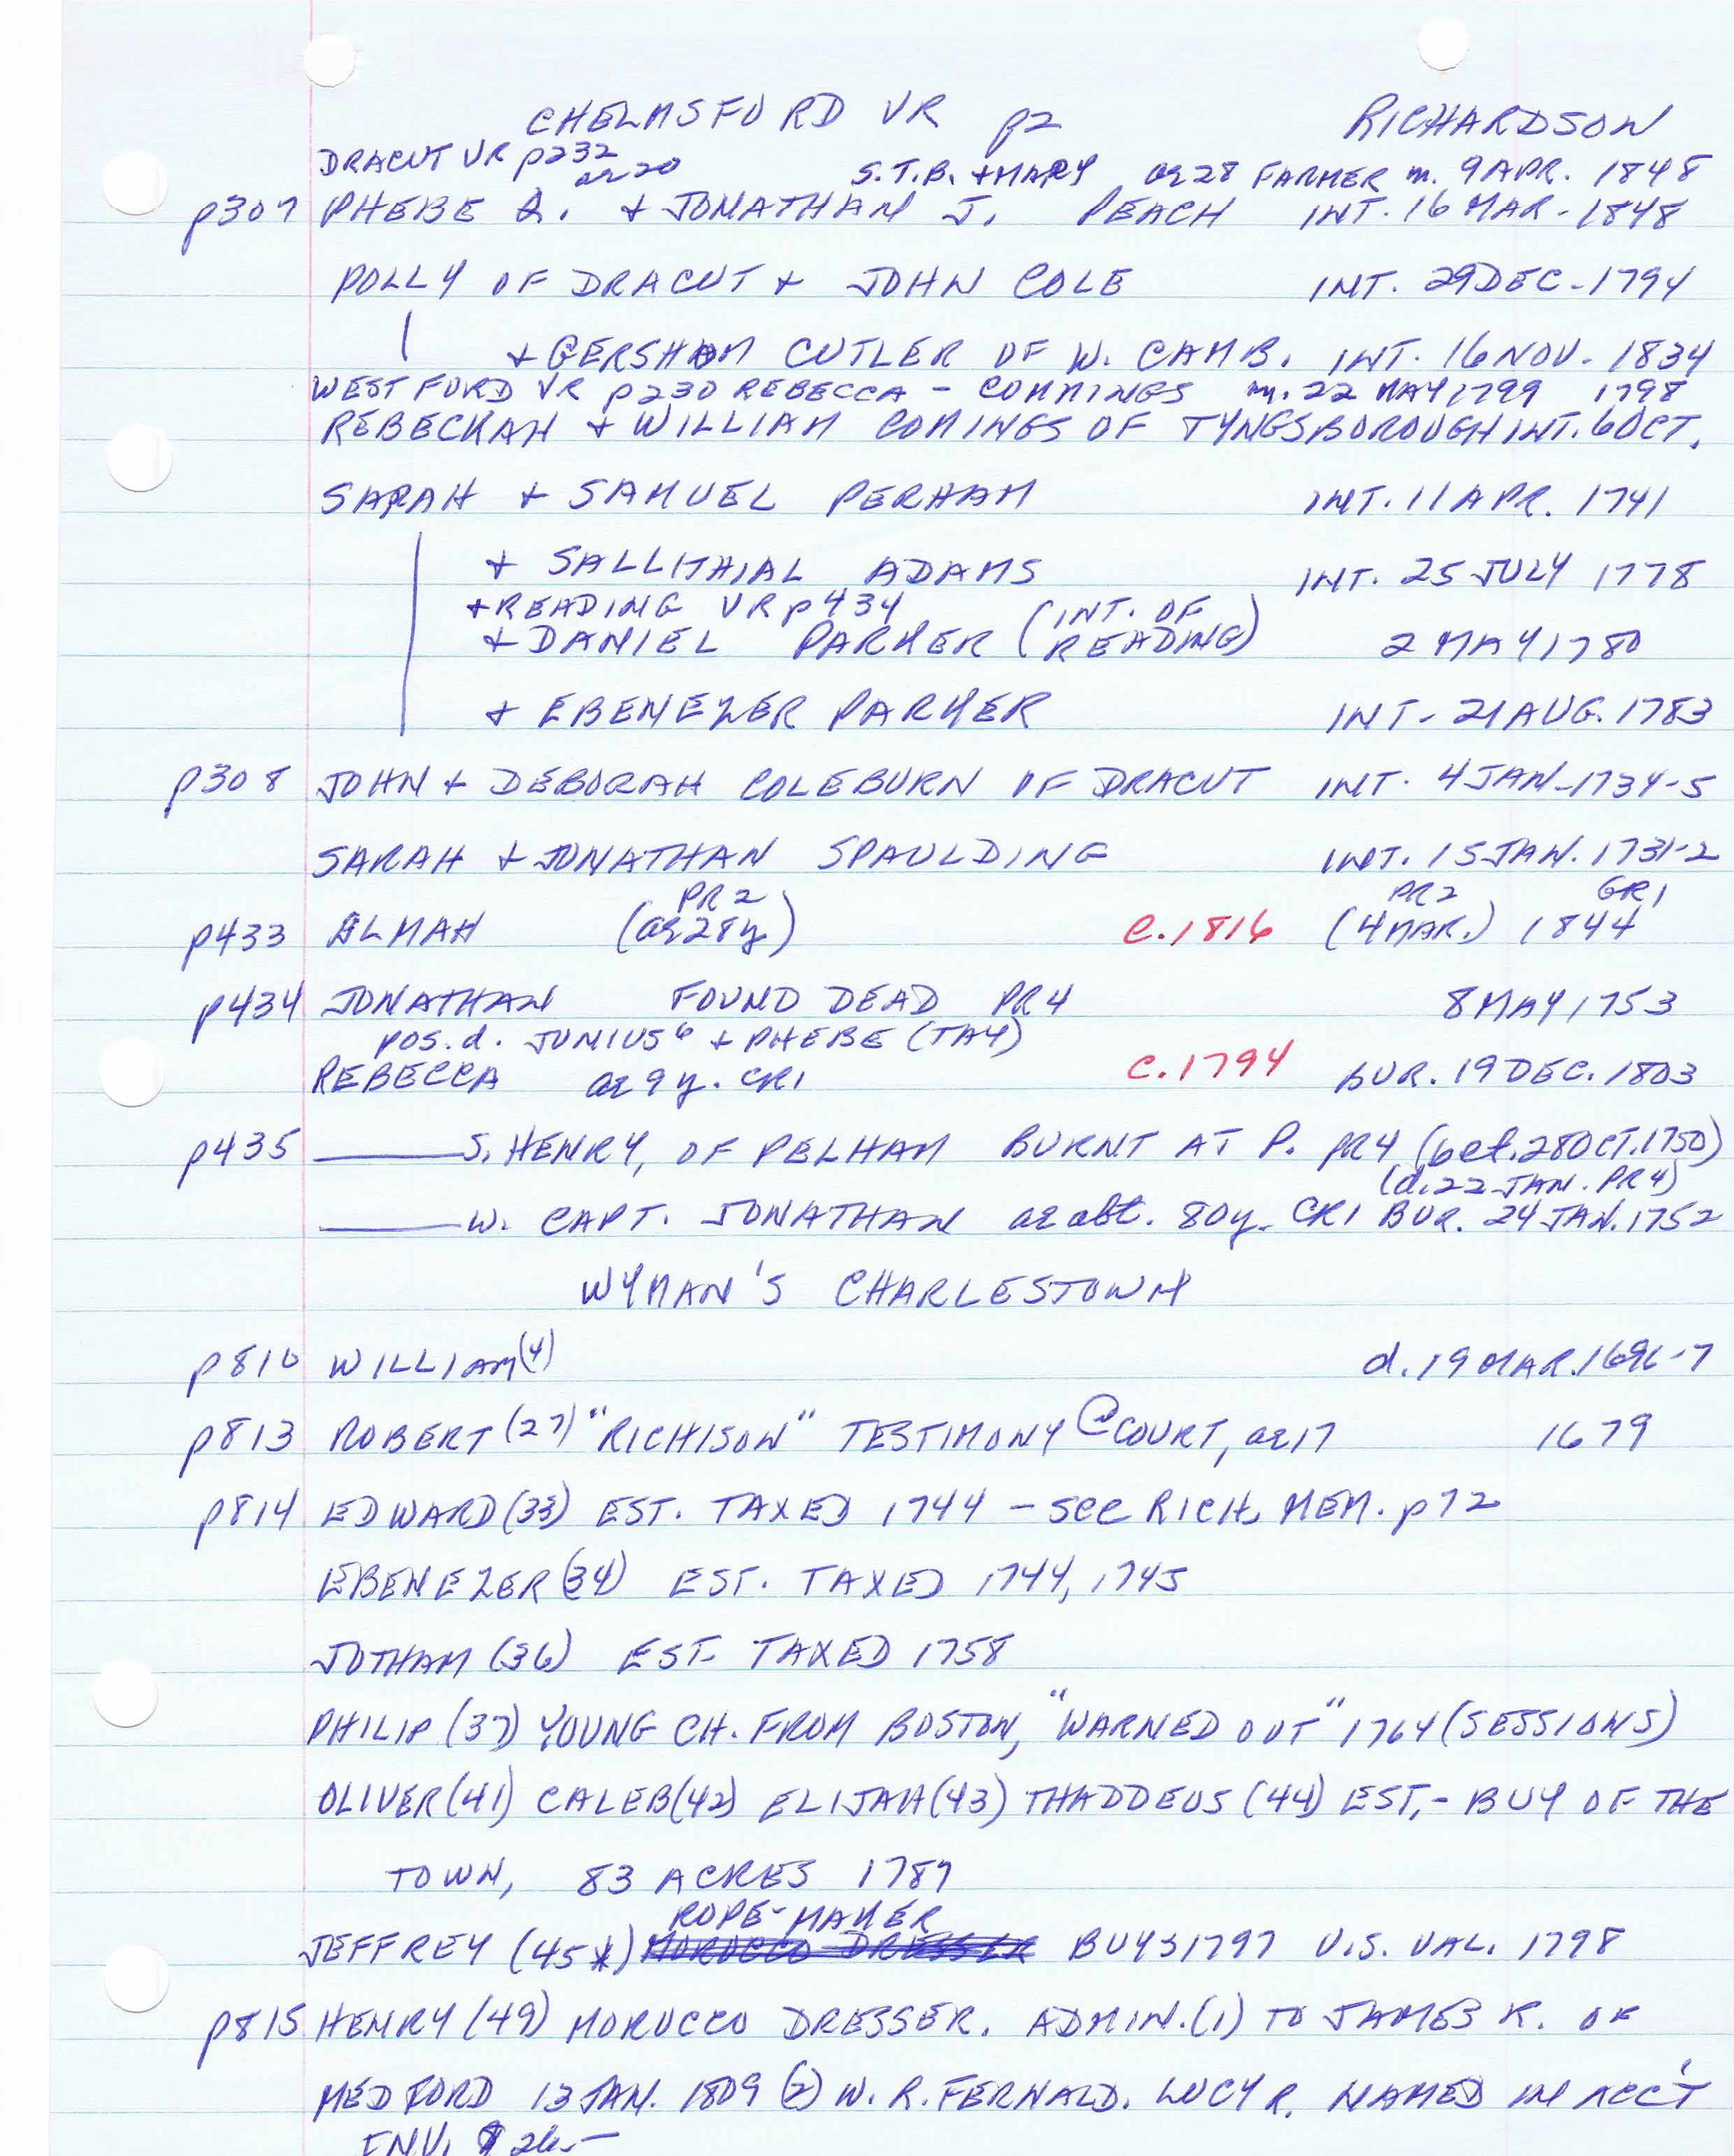 CHELMSFORD VR p2 RICHARDSON
DRACUT VR p232
ae 20 S.T.B. + MARY ae 28 FARMER m. 9 APR. 1848
p307 PHEBE A. + JONATHAN J. PEACH INT. 16 MAR. 1848
POLLY OF DRACUT + JOHN COLE INT. 29 DEC. 1794
+ GERSHOM CUTLER OF W. CAMB. INT. 16 NOV. 1834
WESTFORD VR p230 REBECCA - COMMINGS m. 22 MAY 1799 1798
REBECKAH + WILLIAM COMINGS OF TYNGSBOROUGH INT. 6 OCT.
SARAH + SAMUEL PERHAM INT. 11 APR. 1741
+ SALLITHIAL ADAMS INT. 25 JULY 1778
+ READING VR p434 (INT. OF
+ DANIEL PARKER READING) 2 MAY 1780
+ EBENEZER PARKER INT. 21 AUG. 1783
p308 JOHN + DEBORAH COLEBURN OF DRACUT INT. 4 JAN. 1734-5
SARAH + JONATHAN SPAULDING INT. 15 JAN. 1731-2
PR2 PR2 GR1
p433 ALMAH (ae 28y) c. 1816 (4 MAR.) 1844
p434 JONATHAN FOUND DEAD PR4 8 MAY 1753
pos. d. JUNIUS6 + PHEBE (TAY)
REBECCA ae 9y. CR1 c. 1794 BUR. 19 DEC. 1803
p435 ——— S. HENRY, OF PELHAM BURNT AT P. PR4 (bet. 28 OCT. 1750)
(d. 22 JAN. PR4)
——— W. CAPT. JONATHAN ae abt. 80y. CR1 BUR. 24 JAN. 1752
WYMAN'S CHARLESTOWN
p810 WILLIAM (4) d. 19 MAR. 1696-7
p813 ROBERT (27) "RICHISON" TESTIMONY @ COURT, ae 17 1679
p814 EDWARD (33) EST. TAXED 1744 - see RICH. MEM. p72
EBENEZER (34) EST. TAXED 1744, 1745
JOTHAM (36) EST. TAXED 1758
PHILIP (37) YOUNG CH. FROM BOSTON, "WARNED OUT" 1764 (SESSIONS)
OLIVER (41) CALEB (42) ELIJAH (43) THADDEUS (44) EST. - BUY OF THE
TOWN, 83 ACRES 1787
ROPE-MAKER
JEFFREY (45*) MOROCCO DRESSER BUYS 1797 U.S. VAL. 1798
p815 HENRY (49) MOROCCO DRESSER. ADMIN. (1) TO JAMES K. OF
MEDFORD 13 JAN. 1809 (2) W. R. FERNALD. LUCY R. NAMED IN ACC'T
INV. $26.-